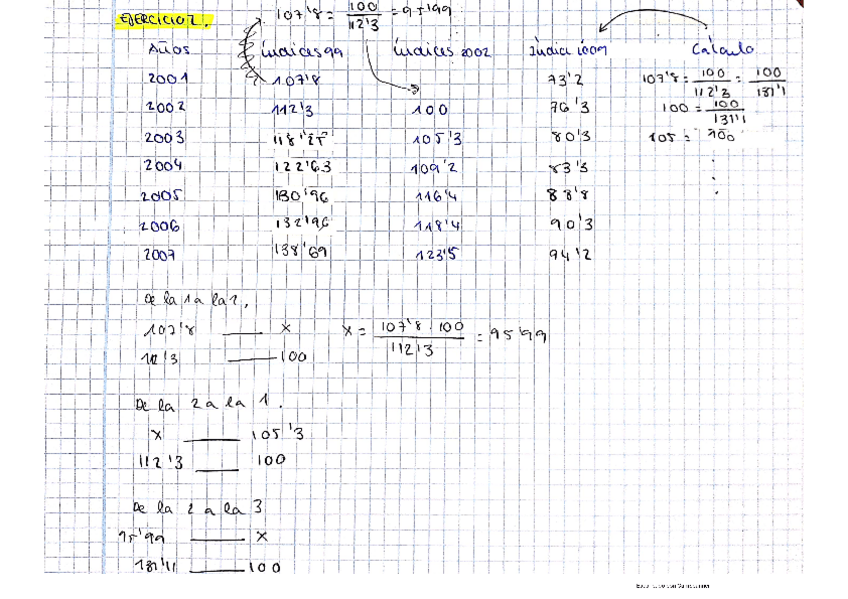 EJERCICIO 2.
107'8 = 100/112'3 = 95'99
Años Índices 99 Índices 2002 Índice 2009 Cálculo
2001 107'8 73'2 107'8 = 100/112'3 = 100/131'1
2002 112'3 100 76'3 100 = 100/131'1
2003 118'25 105'3 80'3 105 = 100
2004 122'63 109'2 83'3
2005 130'96 116'4 88'8
2006 132'96 118'4 90'3
2007 138'69 123'5 94'2
De la 1 a la 2,
107'8 ____ x x = 107'8 · 100/112'3 = 95'99
112'3 ____ 100
De la 2 a la 1.
x ____ 105'3
112'3 ____ 100
De la 2 a la 3
95'99 ____ x
131'11 ____ 100